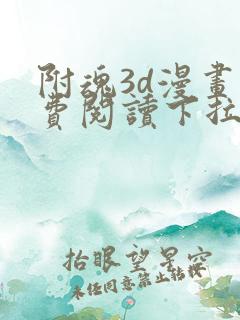 附魂3d漫畫
費閱讀下拉
抬眼望星空
未任同意禁止轉接